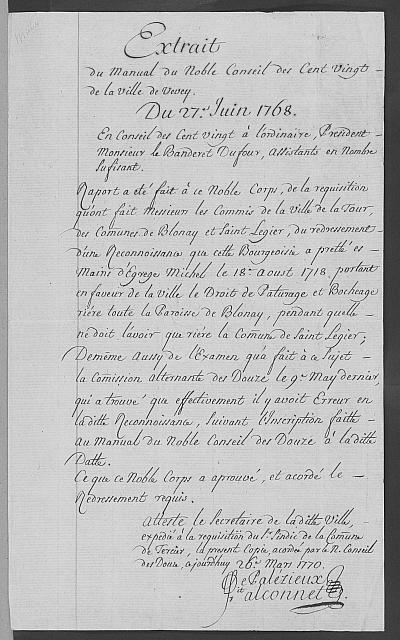 Extrait
du Manual du Noble Conseil des Cent Vingt
de la Ville de Vevey.
Du 27.e Juin 1768.
En Conseil des Cent vingt à l'ordinaire, President
Monsieur le Banderet Dufour, Assistants en Nombre
Sufisant.
Raport a eté fait à ce Noble Corps, de la requisition
qu'ont fait Messieurs les Commis de la Ville de la Tour,
des Comunes de Blonay et Saint Legier, du redressement
d'une Reconnoissance que cette Bourgeoisie a prêtté es
Mains d'Egrege Michel le 18.e Aoust 1718, portant
en faveur de la Ville le Droit de Paturage et Bocheage
riére toute la Paroisse de Blonay, pendant quelle
ne doit l'avoir que riére la Comune de Saint Legier;
Demême Aussy de l'Examen qu'a fait à ce Sujet
la Comission alternante des Douze le 9.e May dernier,
qui a trouvé que effectivement il y avoit Erreur en
laditte Reconnoissance, Suivant l'Inscription faitte
au Manual du Noble Conseil des Douze à laditte
Datte.
Ce que ce Noble Corps a aprouvé, et acordé le
Redressement requis.
Atteste le Secretaire de laditte Ville,
expedié à la requisition du Sr. Sindic de la Comune
de , la present Copie, acordée par le N. Conseil
des Douze, ajourdhuy 26.e Mars 1770.
De Palézieux
Falconnet